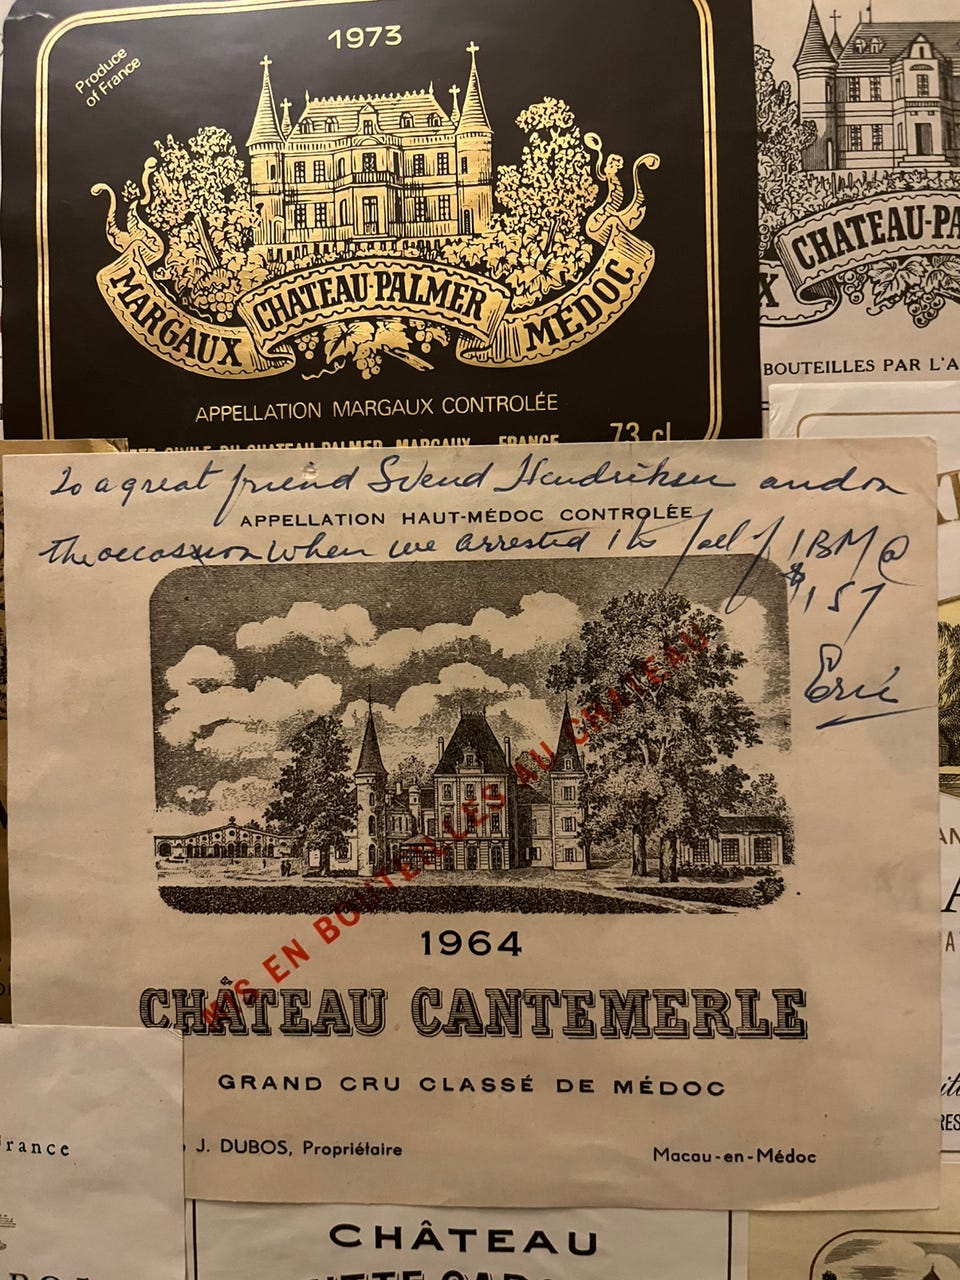 1973
Produce
of France
MARGAUX CHATEAU-PALMER MÉDOC
APPELLATION MARGAUX CONTROLÉE
CHATEAU PALMER MARGAUX FRANCE 73 cl
CHATEAU-PA
X
BOUTEILLES PAR L'A
To a great friend Svend Hendriksen and on
APPELLATION HAUT-MÉDOC CONTROLÉE
the occassion when we arrested the fall of IBM @
$157
Eric
MIS EN BOUTEILLES AU CHATEAU
1964
CHÂTEAU CANTEMERLE
GRAND CRU CLASSÉ DE MÉDOC
J. DUBOS, Propriétaire
Macau-en-Médoc
rance
CHÂTEAU